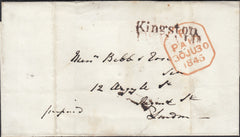 Kingston
PAID
30 JU 30
1845
Messrs Bebb &
12 Argyle St
Regent St
London
prepaid